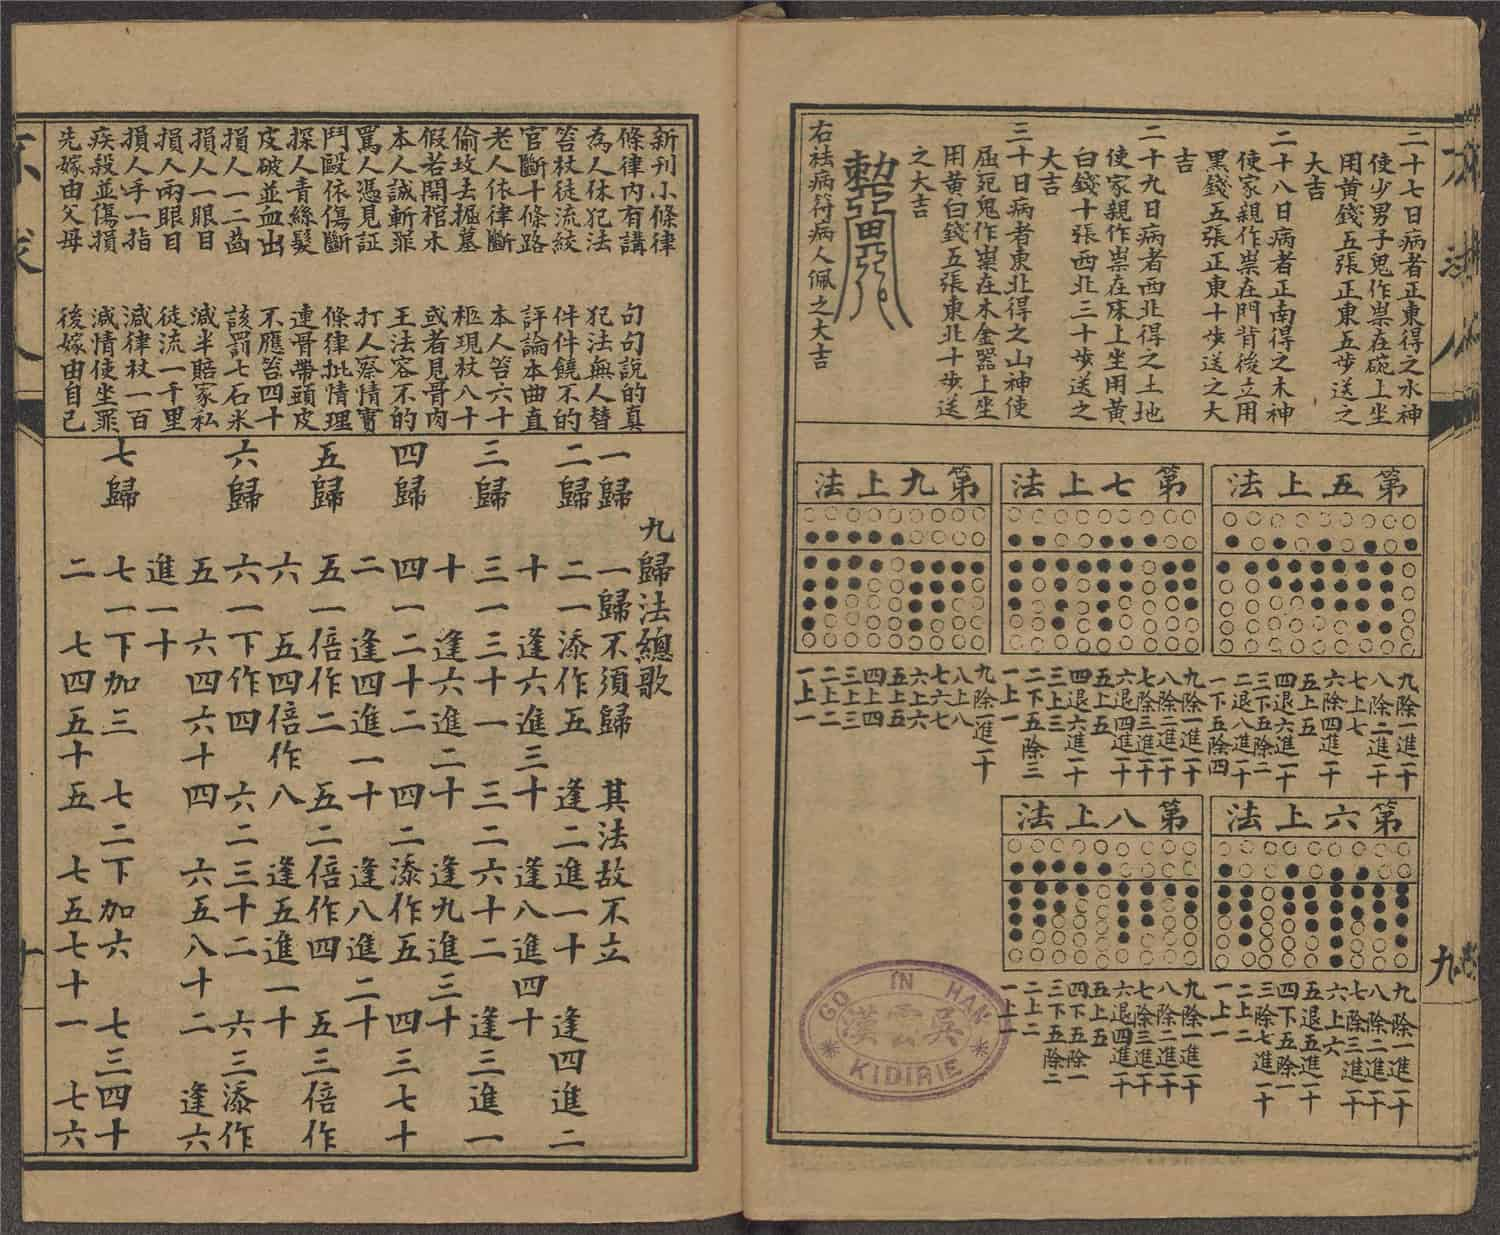 二十七日病者正東得之水神
使少男子鬼作祟在碗上坐
用黄錢五張正東五步送之
大吉
二十八日病者正南得之木神
使家親作祟在門背後立用
黑錢五張正東十步送之大
吉
二十九日病者西北得之土地
使家親作祟在床上坐用黄
白錢十張西北三十步送之
大吉
三十日病者東北得之山神使
屈死鬼作祟在木金器上坐
用黄白錢五張東北十步送
之大吉
右祛病符病人佩之大吉
第五上法
九除一進一十
八除二進一十
七上七
六除四進一十
五上五
四退六進一十
三下五除二
二退八進一十
一下五除四
第七上法
九除一進一十
八除二進一十
七除三進一十
六退四進一十
五上五
四退六進一十
三上三
二下五除三
一上一
第九上法
九除一進一十
八上八
七六七
六上六
五上五
四上四
三上三
二上二
一上一
第六上法
九除一進一十
八除二進一十
七除三進一十
六上六
五退五進一十
四下五除一
三除七進一十
二上二
一上一
第八上法
九除一進一十
八除二進一十
七除三進一十
六退四進一十
五上五
四下五除一
三下五除二
二上二
一上一
九
GO IN HAN
吳雲漢
KIDIRIE
新刊小條律
條律內有講 句句說的真
為人休犯法 犯法無人替
笞杖徒流絞 件件饒不的
官斷十條路 評論本曲直
老人依律斷 本人笞六十
偷坟去掘墓 柩現杖八十
假若開棺木 或者見骨肉
本人誠斬罪 王法容不的
罵人憑見証 打人察情實
鬥毆依傷斷 條律批情理
採人青絲髮 連骨帶頭皮
皮破並血出 不應笞四十
損人一二齒 該罰七石米
損人一眼目 減半賠家私
損人兩眼目 徒流一千里
損人手一指 減律杖一百
疾殺並傷損 減情使坐罪
先嫁由父母 後嫁由自己
九歸法總歌
一歸 一歸不須歸 其法故不立
二歸 二一添作五 逢二進一十 逢四進二
十 逢六進三十 逢八進四十
三歸 三一三十一 三二六十二 逢三進一
十 逢六進二十 逢九進三十
四歸 四一二十二 四二添作五 四三七十
二 逢四進一十 逢八進二十
五歸 五一倍作二 五二倍作四 五三倍作
六 五四倍作八 逢五進一十
六歸 六一下作四 六二三十二 六三添作
五 六四六十四 六五八十二 逢六
進一十
七歸 七一下加三 七二下加六 七三四十
二 七四五十五 七五七十一 七六